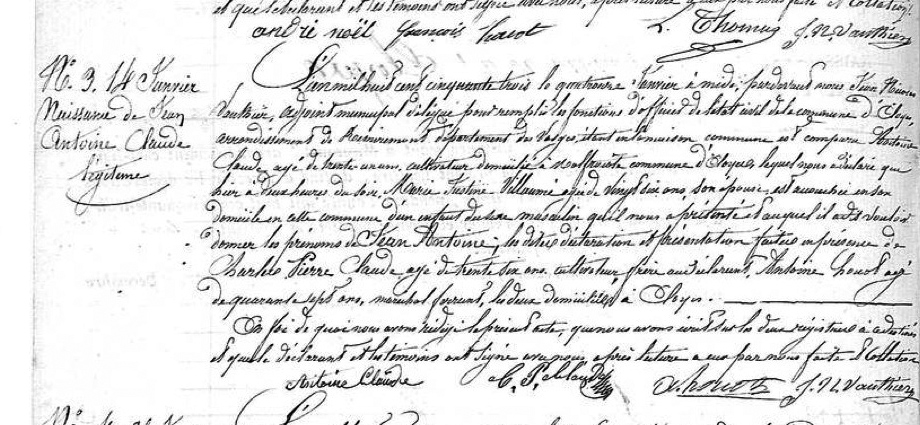 et que le déclarant et les témoins ont signé avec nous, après lecture à eux par nous faite et Collation.
andré noël françois houot L. Thomas J. N. Vauthier
N.° 3. 14 Janvier
Naissance de Jean
Antoine Claude
légitime
L'an mil huit cent cinquante trois le quatorze Janvier à midi, par devant nous Jean Nicolas
Vauthier, adjoint municipal délégué pour remplir les fonctions d'officier de l'état civil de la commune d'Eloyes
arrondissement de Remiremont département des Vosges, étant en la maison commune est comparu Antoine
Claude, agé de trente un ans, cultivateur domicilié à commune d'Eloyes, lequel nous a déclaré que
hier à deux heures du soir, Marie Justine Villaume agée de vingt six ans, son épouse, est accouchée en son
domicile en cette commune d'un enfant du sexe masculin qu'il nous a présenté et auquel il a dit vouloir
donner les prénoms de Jean Antoine; les dites déclaration et présentation faites en présence de
Charles Pierre Claude agé de trente six ans, cultivateur frère au déclarant, Antoine houot agé
de quarante sept ans, maréchal ferrant, les deux domiciliés à Eloyes.
En foi de quoi nous avons rédigé le présent acte, que nous avons inscrit sur les deux registres à ce destinés
et que le déclarant et les témoins ont signé avec nous, après lecture à eux par nous faite et Collation
Antoine Claude C. P. Claude a. houot J. N. Vauthier